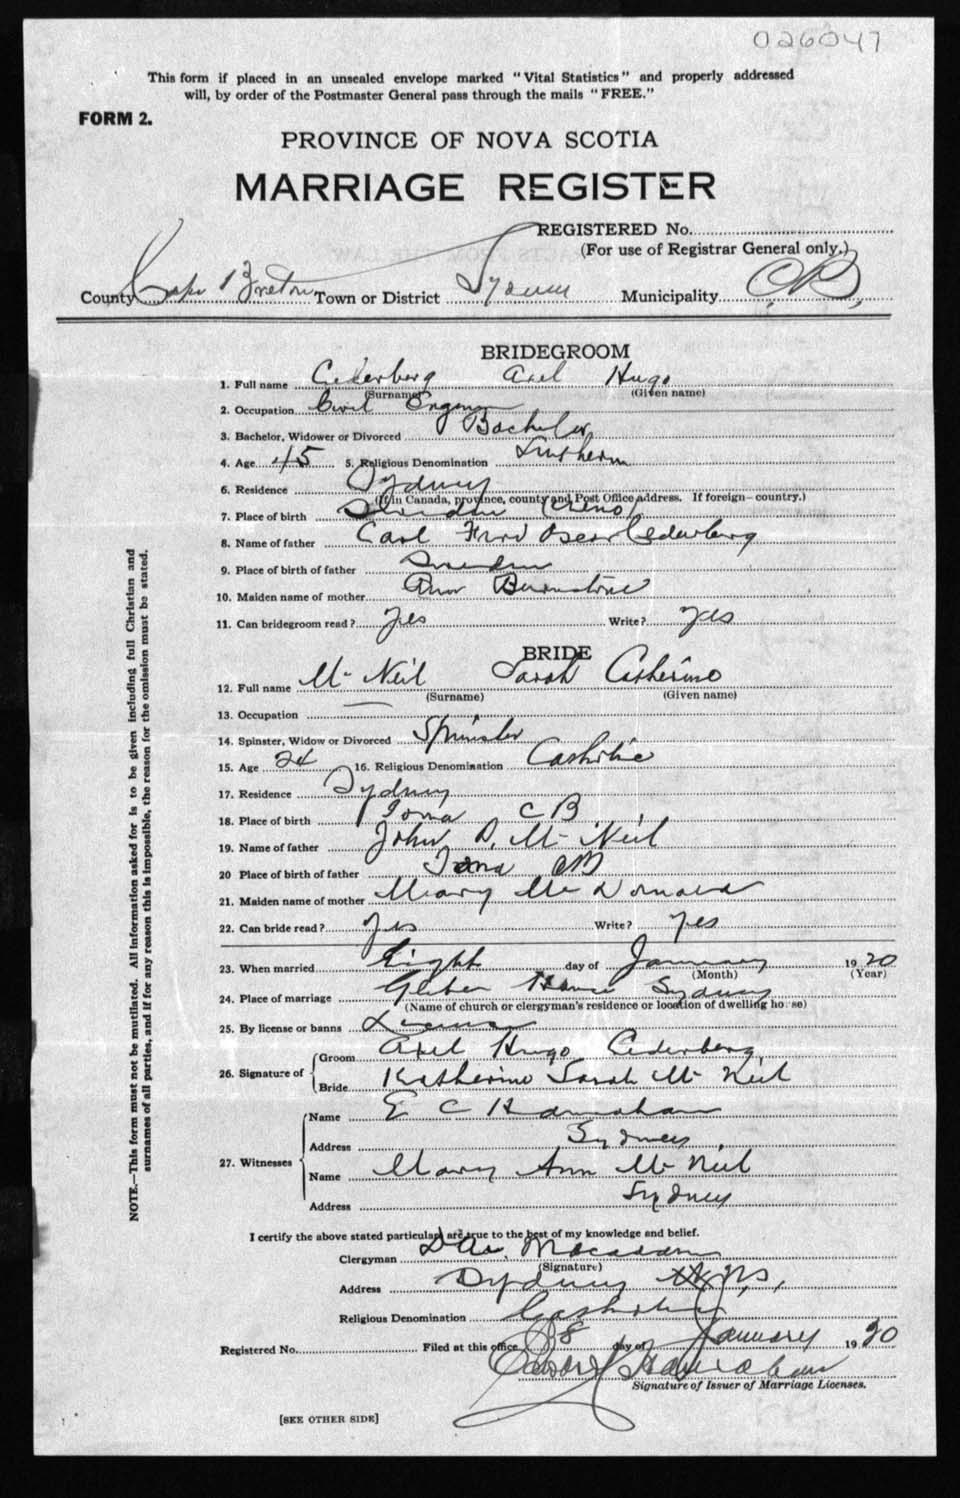 026047
This form if placed in an unsealed envelope marked "Vital Statistics" and properly addressed
will, by order of the Postmaster General pass through the mails "FREE."
FORM 2.
PROVINCE OF NOVA SCOTIA
MARRIAGE REGISTER
REGISTERED No.
(For use of Registrar General only.)
County Cape Breton Town or District Sydney Municipality C.B,
BRIDEGROOM
1. Full name Cederberg Axel Hugo
(Surname) (Given name)
2. Occupation Civil
3. Bachelor, Widower or Divorced Bachelor
4. Age 45 5. Religious Denomination Lutheran
6. Residence Sydney
(If in Canada, province, county and Post Office address. If foreign—country.)
7. Place of birth Sweden
8. Name of father Carl Oscar Cederberg
9. Place of birth of father Sweden
10. Maiden name of mother
11. Can bridegroom read? Yes Write? Yes
BRIDE
12. Full name Mc Neil Sarah Catherine
(Surname) (Given name)
13. Occupation
14. Spinster, Widow or Divorced Spinster
15. Age 24 16. Religious Denomination Catholic
17. Residence Sydney
18. Place of birth Iona C B
19. Name of father John D. Mc Neil
20 Place of birth of father Iona CB
21. Maiden name of mother Mary Mc Donald
22. Can bride read? Yes Write? Yes
23. When married Eight day of January 1920
(Month) (Year)
24. Place of marriage Glebe House Sydney
(Name of church or clergyman's residence or location of dwelling house)
25. By license or banns License
26. Signature of Groom Axel Hugo Cederberg
Bride Katherine Sarah Mc Neil
27. Witnesses
Name E C Hanrahan
Address Sydney
Name Mary Ann Mc Neil
Address Sydney
I certify the above stated particulars are true to the best of my knowledge and belief.
Clergyman Macadam
(Signature)
Address Sydney N.S.
Religious Denomination Catholic
Registered No. Filed at this office 8 day of January 1920
Edward Hanrahan
Signature of Issuer of Marriage Licenses.
[SEE OTHER SIDE]
NOTE.—This form must not be mutilated. All information asked for is to be given including full Christian and
surnames of all parties, and if for any reason this is impossible, the reason for the omission must be stated.